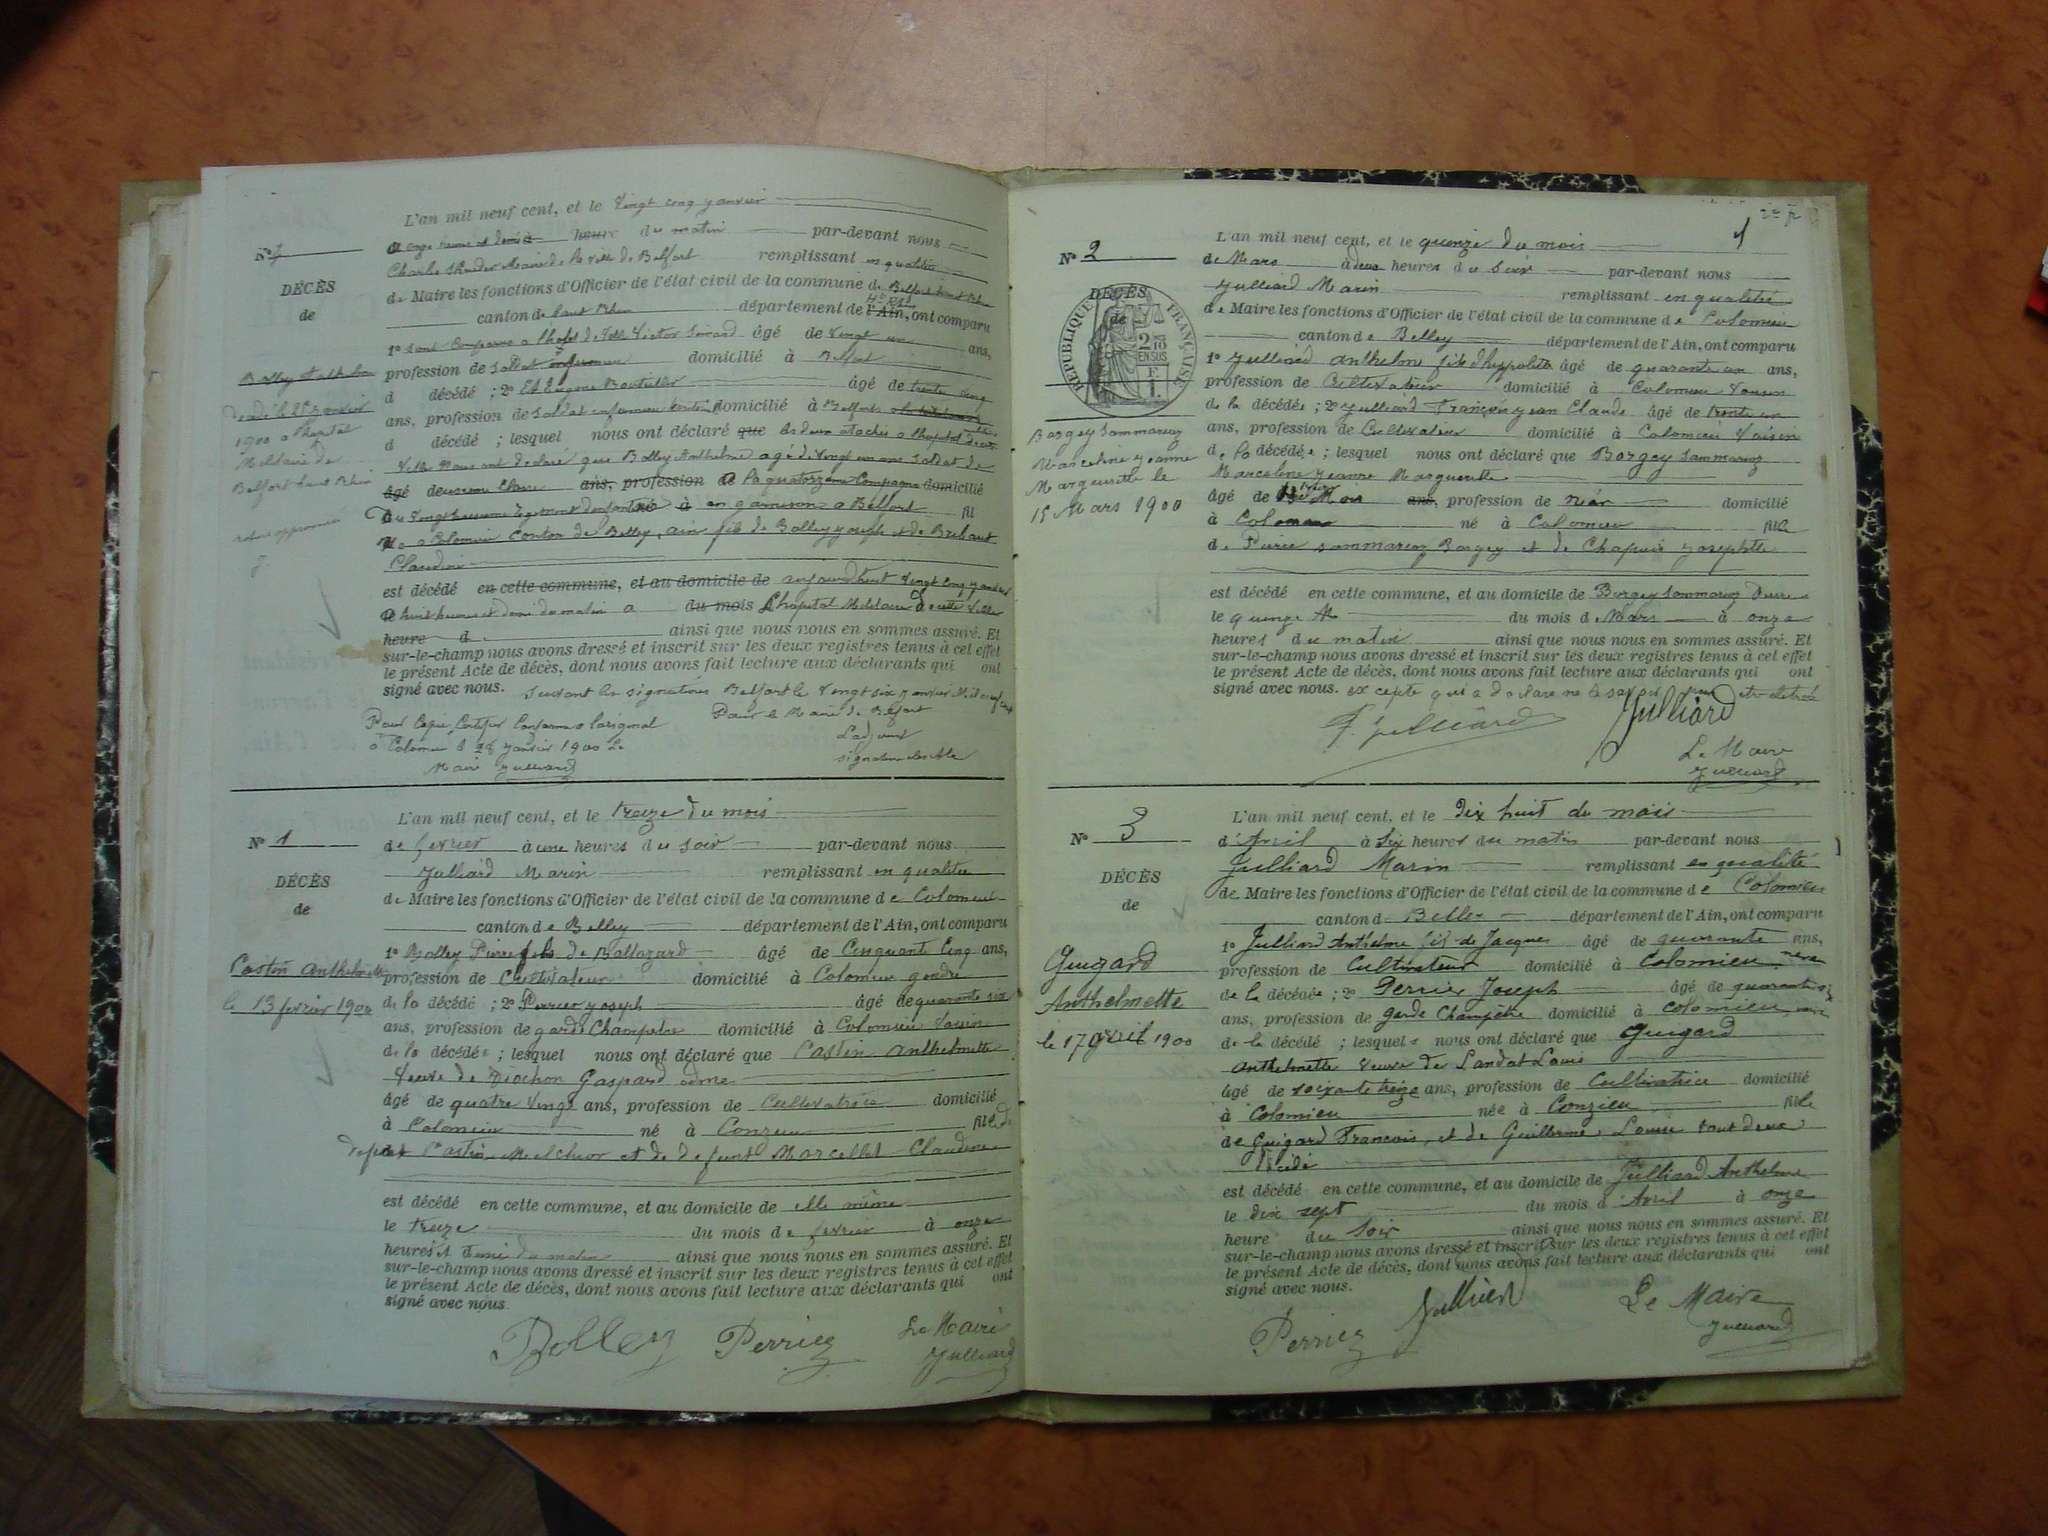 L'an mil neuf cent, et le Vingt cinq janvier
à onze heures et demie heure du matin par-devant nous
Charles Maire de la Ville de Belfort remplissant en qualité
de Maire les fonctions d'Officier de l'état civil de la commune de Belfort haut Rhin
canton de haut Rhin département de l'Ain, ont comparu
1º Victor âgé de Vingt un ans,
profession de Soldat infirmier domicilié à Belfort
d décédé ; 2º Et Eugène Bouteiller âgé de trente cinq
ans, profession de Soldat infirmier domicilié à Belfort
d décédé ; lesquel nous ont déclaré que les deux attachés a l'hopital de cette
Ville nous ont déclaré que Bolley Anthelme agé de Vingt un ans Soldat de
âgé deuxieme Classe ans, profession de la quatorzieme Compagnie domicilié
regiment d'infanterie à en garnison a Belfort fil
Né a Colomieu Canton de Belley, ain fils de Bolley joseph et de
Claudine
est décédé en cette commune, et au domicile de aujourdhuit Vingt cinq janvier
a huit heures et demi du matin a du mois l'hopital Militaire de cette Ville
heure d ainsi que nous nous en sommes assuré. Et
sur-le-champ nous avons dressé et inscrit sur les deux registres tenus à cet effet
le présent Acte de décès, dont nous avons fait lecture aux déclarants qui ont
signé avec nous. Suivent les signatures Belfort le Vingt six janvier Mil neuf cent
Pour Copie Certifiée Conforme a l'original
Pour le Maire de Belfort
a Colomieu le 28 janvier 1900 Le
L'adjoint
Maire Julliard
signature illisible
Nº
DÉCÈS
de
Bolley Anthelme
décédé le 25 janvier
1900 a l'hopital
Militaire de
Belfort haut Rhin
L'an mil neuf cent, et le treize du mois
de fevrier à une heures du soir par-devant nous
Julliard Marin remplissant en qualité
de Maire les fonctions d'Officier de l'état civil de la commune de Colomieu
canton de Belley département de l'Ain, ont comparu
1º Bolley Pierre fils de Baltazard âgé de Cinquante Cinq ans,
profession de Cultivateur domicilié à Colomieu gendre
de la décédé ; 2º Perrier joseph âgé de quarante six
ans, profession de garde Champetre domicilié à Colomieu Voisin
de la décédée ; lesquel nous ont déclaré que Castin Anthelmette
Veuve de Diochon Gaspard
âgé de quatre Vingt ans, profession de Cultivatrice domicilié
à Colomieu né à Conzieu fille de
defunt Castin Melchior et de defunt Marcellet Claudine
est décédé en cette commune, et au domicile de elle même
le treize du mois de fevrier à onze
heures et demi du matin ainsi que nous nous en sommes assuré. Et
sur-le-champ nous avons dressé et inscrit sur les deux registres tenus à cet effet
le présent Acte de décès, dont nous avons fait lecture aux déclarants qui ont
signé avec nous.
Bolley Perrier Le Maire
Julliard
Nº 1
DÉCÈS
de
Castin Anthelmette
le 13 fevrier 1900
L'an mil neuf cent, et le quinze du mois
de Mars à deux heures du soir par-devant nous
Julliard Marin remplissant en qualité
de Maire les fonctions d'Officier de l'état civil de la commune de Colomieu
canton de Belley département de l'Ain, ont comparu
1º Julliard anthelme fils d'hyppolite âgé de quarante un ans,
profession de Cultivateur domicilié à Colomieu Voisin
de la décédée ; 2º Julliard François jean Claude âgé de trente un
ans, profession de Cultivateur domicilié à Colomieu Voisin
de la décédée ; lesquel nous ont déclaré que Borgey Sammarieu
Marceline jeanne Marguerite
âgé de Mois ans, profession de domicilié
à Colomieu né à Colomieu fille
de Pierre Borgey et de Chapuis josephte
est décédé en cette commune, et au domicile de Borgey Pierre
le quinze du mois de Mars à onze
heures du matin ainsi que nous nous en sommes assuré. Et
sur-le-champ nous avons dressé et inscrit sur les deux registres tenus à cet effet
le présent Acte de décès, dont nous avons fait lecture aux déclarants qui ont
signé avec nous. excepté qui a declaré ne le savoir
F. Julliard Julliard
Le Maire
Julliard
Nº 2
DÉCÈS
de
RÉPUBLIQUE FRANÇAISE
Borgey
Marceline jeanne
Marguerite le
15 Mars 1900
L'an mil neuf cent, et le dix huit du mois
d'Avril à six heures du matin par-devant nous
Julliard Marin remplissant en qualité
de Maire les fonctions d'Officier de l'état civil de la commune de Colomieu
canton de Belley département de l'Ain, ont comparu
1º Julliard Anthelme fils de Jacques âgé de quarante ans,
profession de Cultivateur domicilié à Colomieu neveu
de la décédée ; 2º Perrier Joseph âgé de quarante six
ans, profession de Garde Champêtre domicilié à Colomieu
de la décédé ; lesquels nous ont déclaré que Guigard
Anthelmette veuve de Landat Louis
âgé de soixante treize ans, profession de Cultivatrice domicilié
à Colomieu née à Conzieu fille
de Guigard François, et de Guillerme Louise tout deux
décédé
est décédé en cette commune, et au domicile de Julliard Anthelme
le dix sept du mois d'Avril à onze
heure du soir ainsi que nous nous en sommes assuré. Et
sur-le-champ nous avons dressé et inscrit sur les deux registres tenus à cet effet
le présent Acte de décès, dont nous avons fait lecture aux déclarants qui ont
signé avec nous.
Perrier Julliard Le Maire
Julliard
Nº 3
DÉCÈS
de
Guigard
Anthelmette
le 17 avril 1900